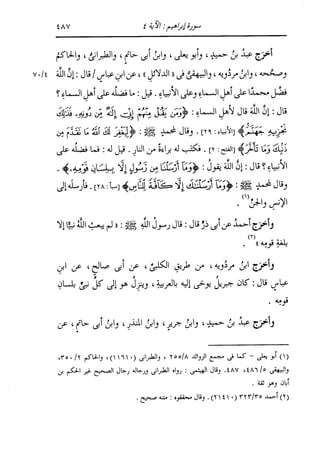 سورة إبراهيم : الآية ٤
٤٨٧
أخرج عبدُ بنُ حميدٍ ، وأبو يعلى ، وابنُ أبى حاتمٍ ، والطبرانىُّ ، والحاكمُ
وصحَّحه ، وابنُ مردُويَه ، والبيهقىُّ فى « الدلائلِ » ، عن ابنِ عباسٍ / قال : إنَّ اللَّهَ
٧٠/٤
فضَّل محمدًا على أهلِ السماءِ وعلى الأنبياءِ . قيل : ما فضلُه على أهلِ السماءِ ؟
قال : إنَّ اللَّهَ قال لأهلِ السماءِ : ﴿ وَمَن يَقُلْ مِنْهُمْ إِنِّت إِلَٰهٌ مِّن دُونِهِۦ فَذَٰلِكَ
نَجْزِيهِ جَهَنَّمَ ﴾ [الأنبياء : ٢٩] . وقال لمحمدٍ ﷺ : ﴿ لِّيَغْفِرَ لَكَ ٱللَّهُ مَا تَقَدَّمَ مِن
ذَنۢبِكَ وَمَا تَأَخَّرَ ﴾ [الفتح : ٢] . فكتَب له براءةً من النارِ . قيل له : فما فضلُه على
الأنبياءِ ؟ قال : إنَّ اللَّهَ يقولُ : ﴿ وَمَآ أَرْسَلْنَا مِن رَّسُولٍ إِلَّا بِلِسَانِ قَوْمِهِۦ ﴾ .
وقال لمحمدٍ ﷺ : ﴿ وَمَآ أَرْسَلْنَٰكَ إِلَّا كَآفَّةً لِّلنَّاسِ ﴾ [سبأ : ٢٨] . فأرسَله إلى
الإنسِ والجنِّ (١) .
وأخرج أحمدُ عن أبى ذرٍّ قال : قال رسولُ اللَّهِ ﷺ : « لم يبعثِ اللَّهُ نبيًّا إلا
بلغةِ قومِه » (٢) .
وأخرج ابنُ مردُويَه ، من طريقِ الكلبىِّ ، عن أبى صالحٍ ، عن ابنِ
عباسٍ قال : كان جبريلُ يوحَى إليه بالعربيةِ ، وينزِلُ هو إلى كلِّ نبىٍّ بلسانِ
قومِه .
وأخرج عبدُ بنُ حميدٍ ، وابنُ جريرٍ ، وابنُ المنذرِ ، وابنُ أبى حاتمٍ ، عن
(١) أبو يعلى - كما فى مجمع الزوائد ٢٥٥/٨ ، والطبرانى (١١٦١٠) ، والحاكم ٣٥٠/٢ ،
والبيهقى ٤٨٦/٥، ٤٨٧. وقال الهيثمى : رواه الطبرانى ورجاله رجال الصحيح غير الحكم بن
أبان وهو ثقة .
(٢) أحمد ٣٢٣/٣٥ (٢١٤١٠) . وقال محققوه : متنه صحيح .